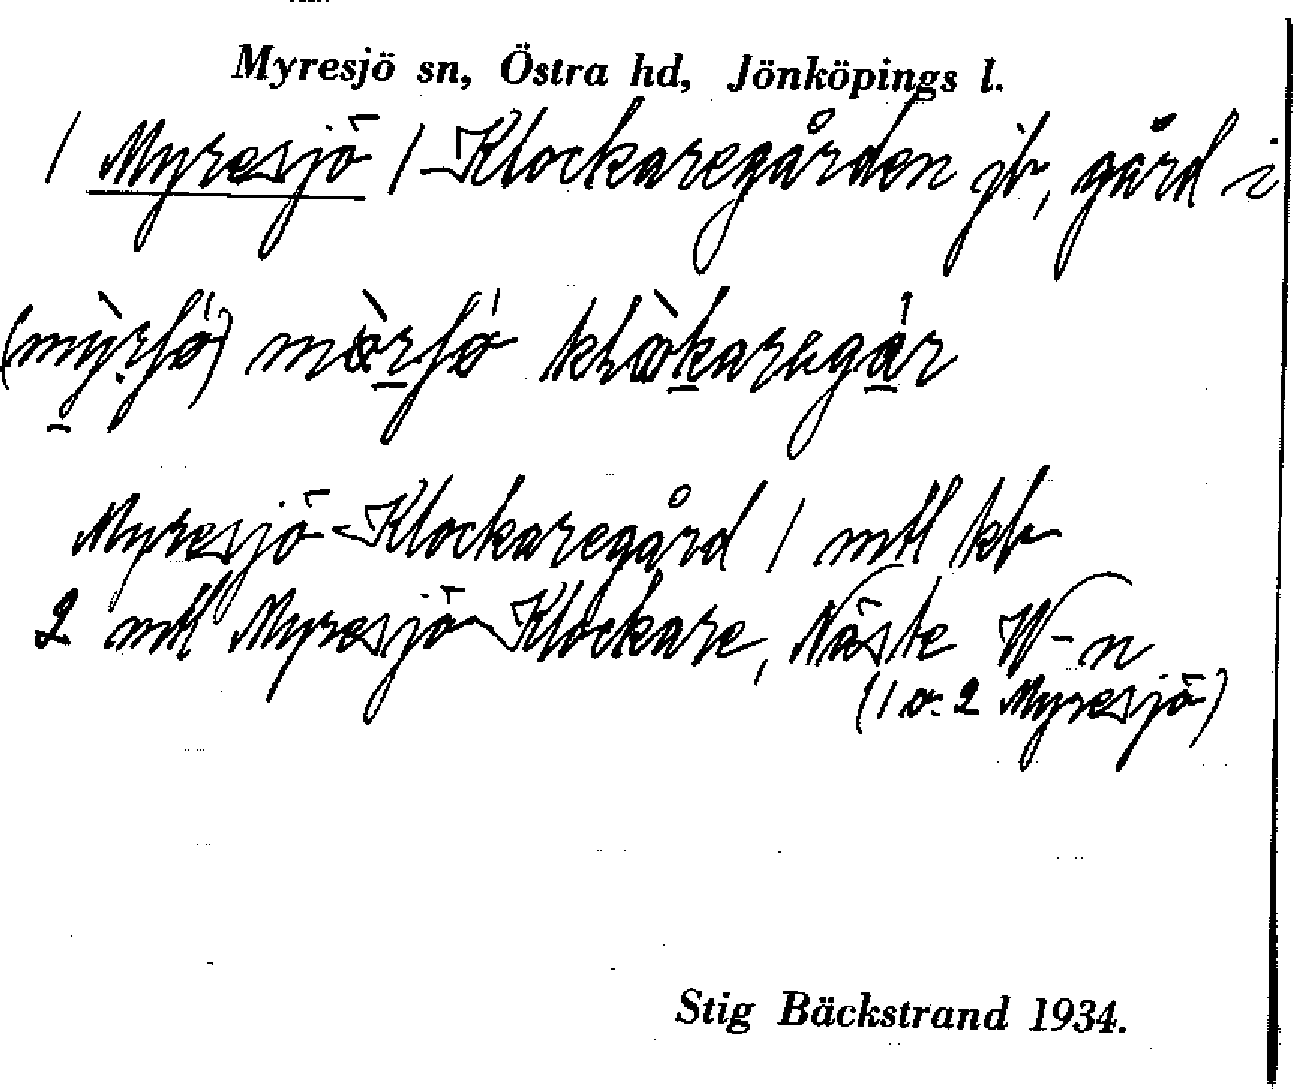 Myresjö sn, Östra hd, Jönköpings l.
/ Myresjö / - Klockaregården jb, gård i
Myresjö - Klockaregård 1 mtl kb
2 mtl Myresjö - Klockare, Näste W-n
(1 o. 2 Myresjö)
Stig Bäckstrand 1934.